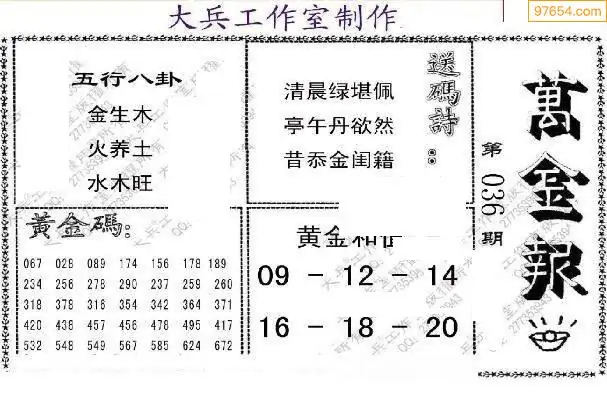 大兵工作室制作
97654.com
五行八卦
金生木
火养土
水木旺
送碼詩：
清晨绿堪佩
亭午丹欲然
昔忝金闺籍
萬金报
第036期
黃金碼:
067 028 089 174 156 178 189
234 256 278 290 237 259 260
318 378 316 354 342 364 371
420 438 457 456 478 495 417
532 548 549 567 585 624 672
黄金
09 - 12 - 14
16 - 18 - 20